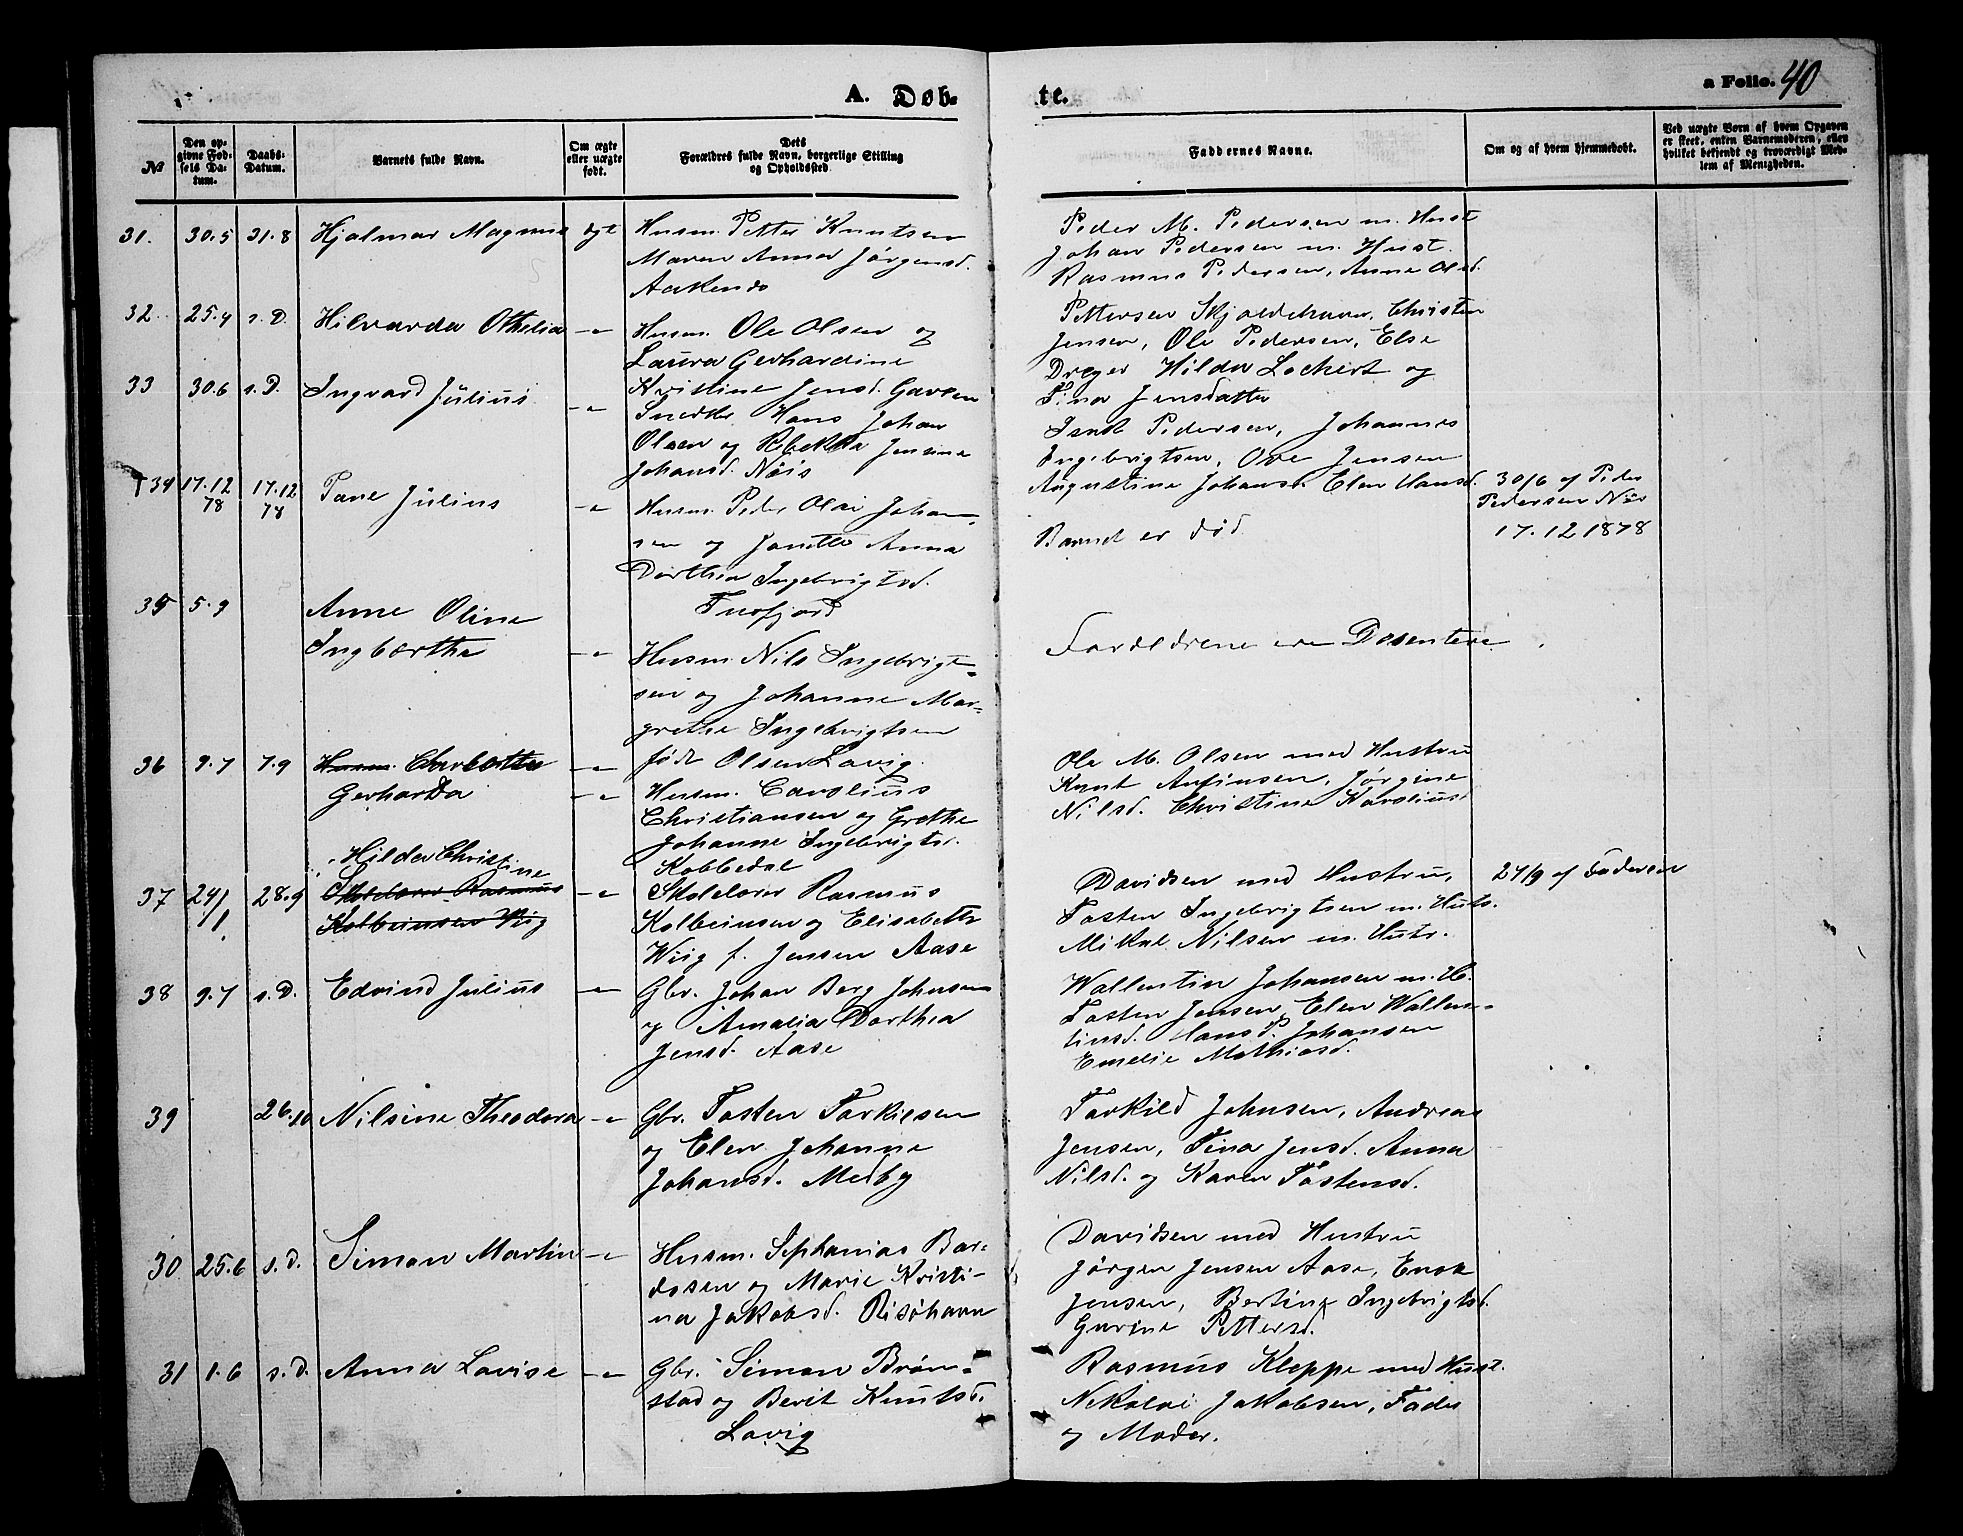 A. Døb-
te.
a Folio. 40
No
Den op-
givne Fød-
sels Da-
tum.
Daabs-
Datum.
Barnets fulde Navn.
Om ægte
eller uægte
født.
Dets
Forældres fulde Navn, borgerlige Stilling
og Opholdssted
Faddernes Navne.
Om og af hvem hjemmedøbt.
Ved uægte Børn af hvem Opgaven
er skeet, enten Barnemoderen, eller
hvilket bekjendt og troværdigt Med-
lem af Menigheden.
31. 30.5 31.8 Hjalmar Magnus ægt Husm. Petter Knutsen
Maren Anna Jørgensd.
Peder M. Pedersen m. Hust
Johan Pedersen m. Hust.
Rasmus Pedersen, Anne Olsd.
32 25.4 s.D. Hilvarda Othelia -"- Husm. Ole Olsen og
Laura Gerhardine
Kristine Jensd. Gavlen
Pettersen Skjoldehavn, Christen
Jensen, Ole Pedersen, Else
Dreyer Hilda Lochert og
Tina Jensdatter
33 30.6 s.D. Ingvard Julius -"-
Snedker Hans Johan
Olsen og Rebekka Jensine
Johansd. Nøis
Isak Pedersen, Johannes
Engebrigtsen, Ove Jensen
Augustine Johansd. Elen Hansd.
30/6 af Peder
Pedersen Nøis
†34 17.12 78 17.12 78 Tane Julius -"- Husm. Peder Olai Johan-
sen og Janette Anna
Dorthea Ingebrigtsd.
Tusfjord
Barnet er død
17.12 1878
35 5.9 Anne Oline
Ingbærtha -"- Husm. Nils Ingebrigt-
sen og Johanne Mar-
grethe Ingebrigtsen
født Olsen Lovig
Forældrene ere Desentere
36 9.7 7.9 Husm. Charlotte -"-
Gerharda -"- Husm. Carolius
Christiansen og Grethe
Johanne Ingebrigts.
Kobbedal
Ole M. Olsen med Hustru
Knut Anfinsen, Jørgine
Nilsd. Christine Karoliusd
Hilda Christine
37 24/1 28.9 Skolelærer Rasmus
Kolbeinsen Wiig -"- Skolelærer Rasmus
Kolbeinsen og Elisabeth
Wiig f. Jensen Aase
Davidsen med Hustru,
Tosten Ingebrigtsen m. Hutr.
Mikal Nilsen m. Hutr.
24/9 af Faderen
38 9.7 s.D. Edvind Julius -"- Gbr. Johan Berg Johnsen
og Amalia Dorthea
Jensd. Aase
Wallentin Johansen m. H.
Tosten Jensen, Elen Wallen-
tinsd. Hans P. Johansen
Emelie Mathiasd.
39 26.10 Nilsine Theodora -"- Gbr. Tosten Torkilsen
og Elen Johanne
Johansd. Medby
Torkild Johnsen, Andreas
Jensen, Tina Jensd. Anna
Nilsd. og Karen Tostensd.
30 25.6 s.d. Simon Martin -"- Husm. Sephanias Bar-
dosen og Marie Kristi-
na Jakobsd. Risøhavn
Davidsen med Hustru
Jørgen Jensen Aase, Enok
Jensen, Bertine Ingebrigtsd.
Gurine Pettersd.
31 1.6 s.d. Anna Lovise -"- Gbr. Simon Brøn-
stad og Berit Knutsd.
Lovig
Rasmus Kleppe med Hust.
Nikolai Jakobsen, Fader
og Moder.